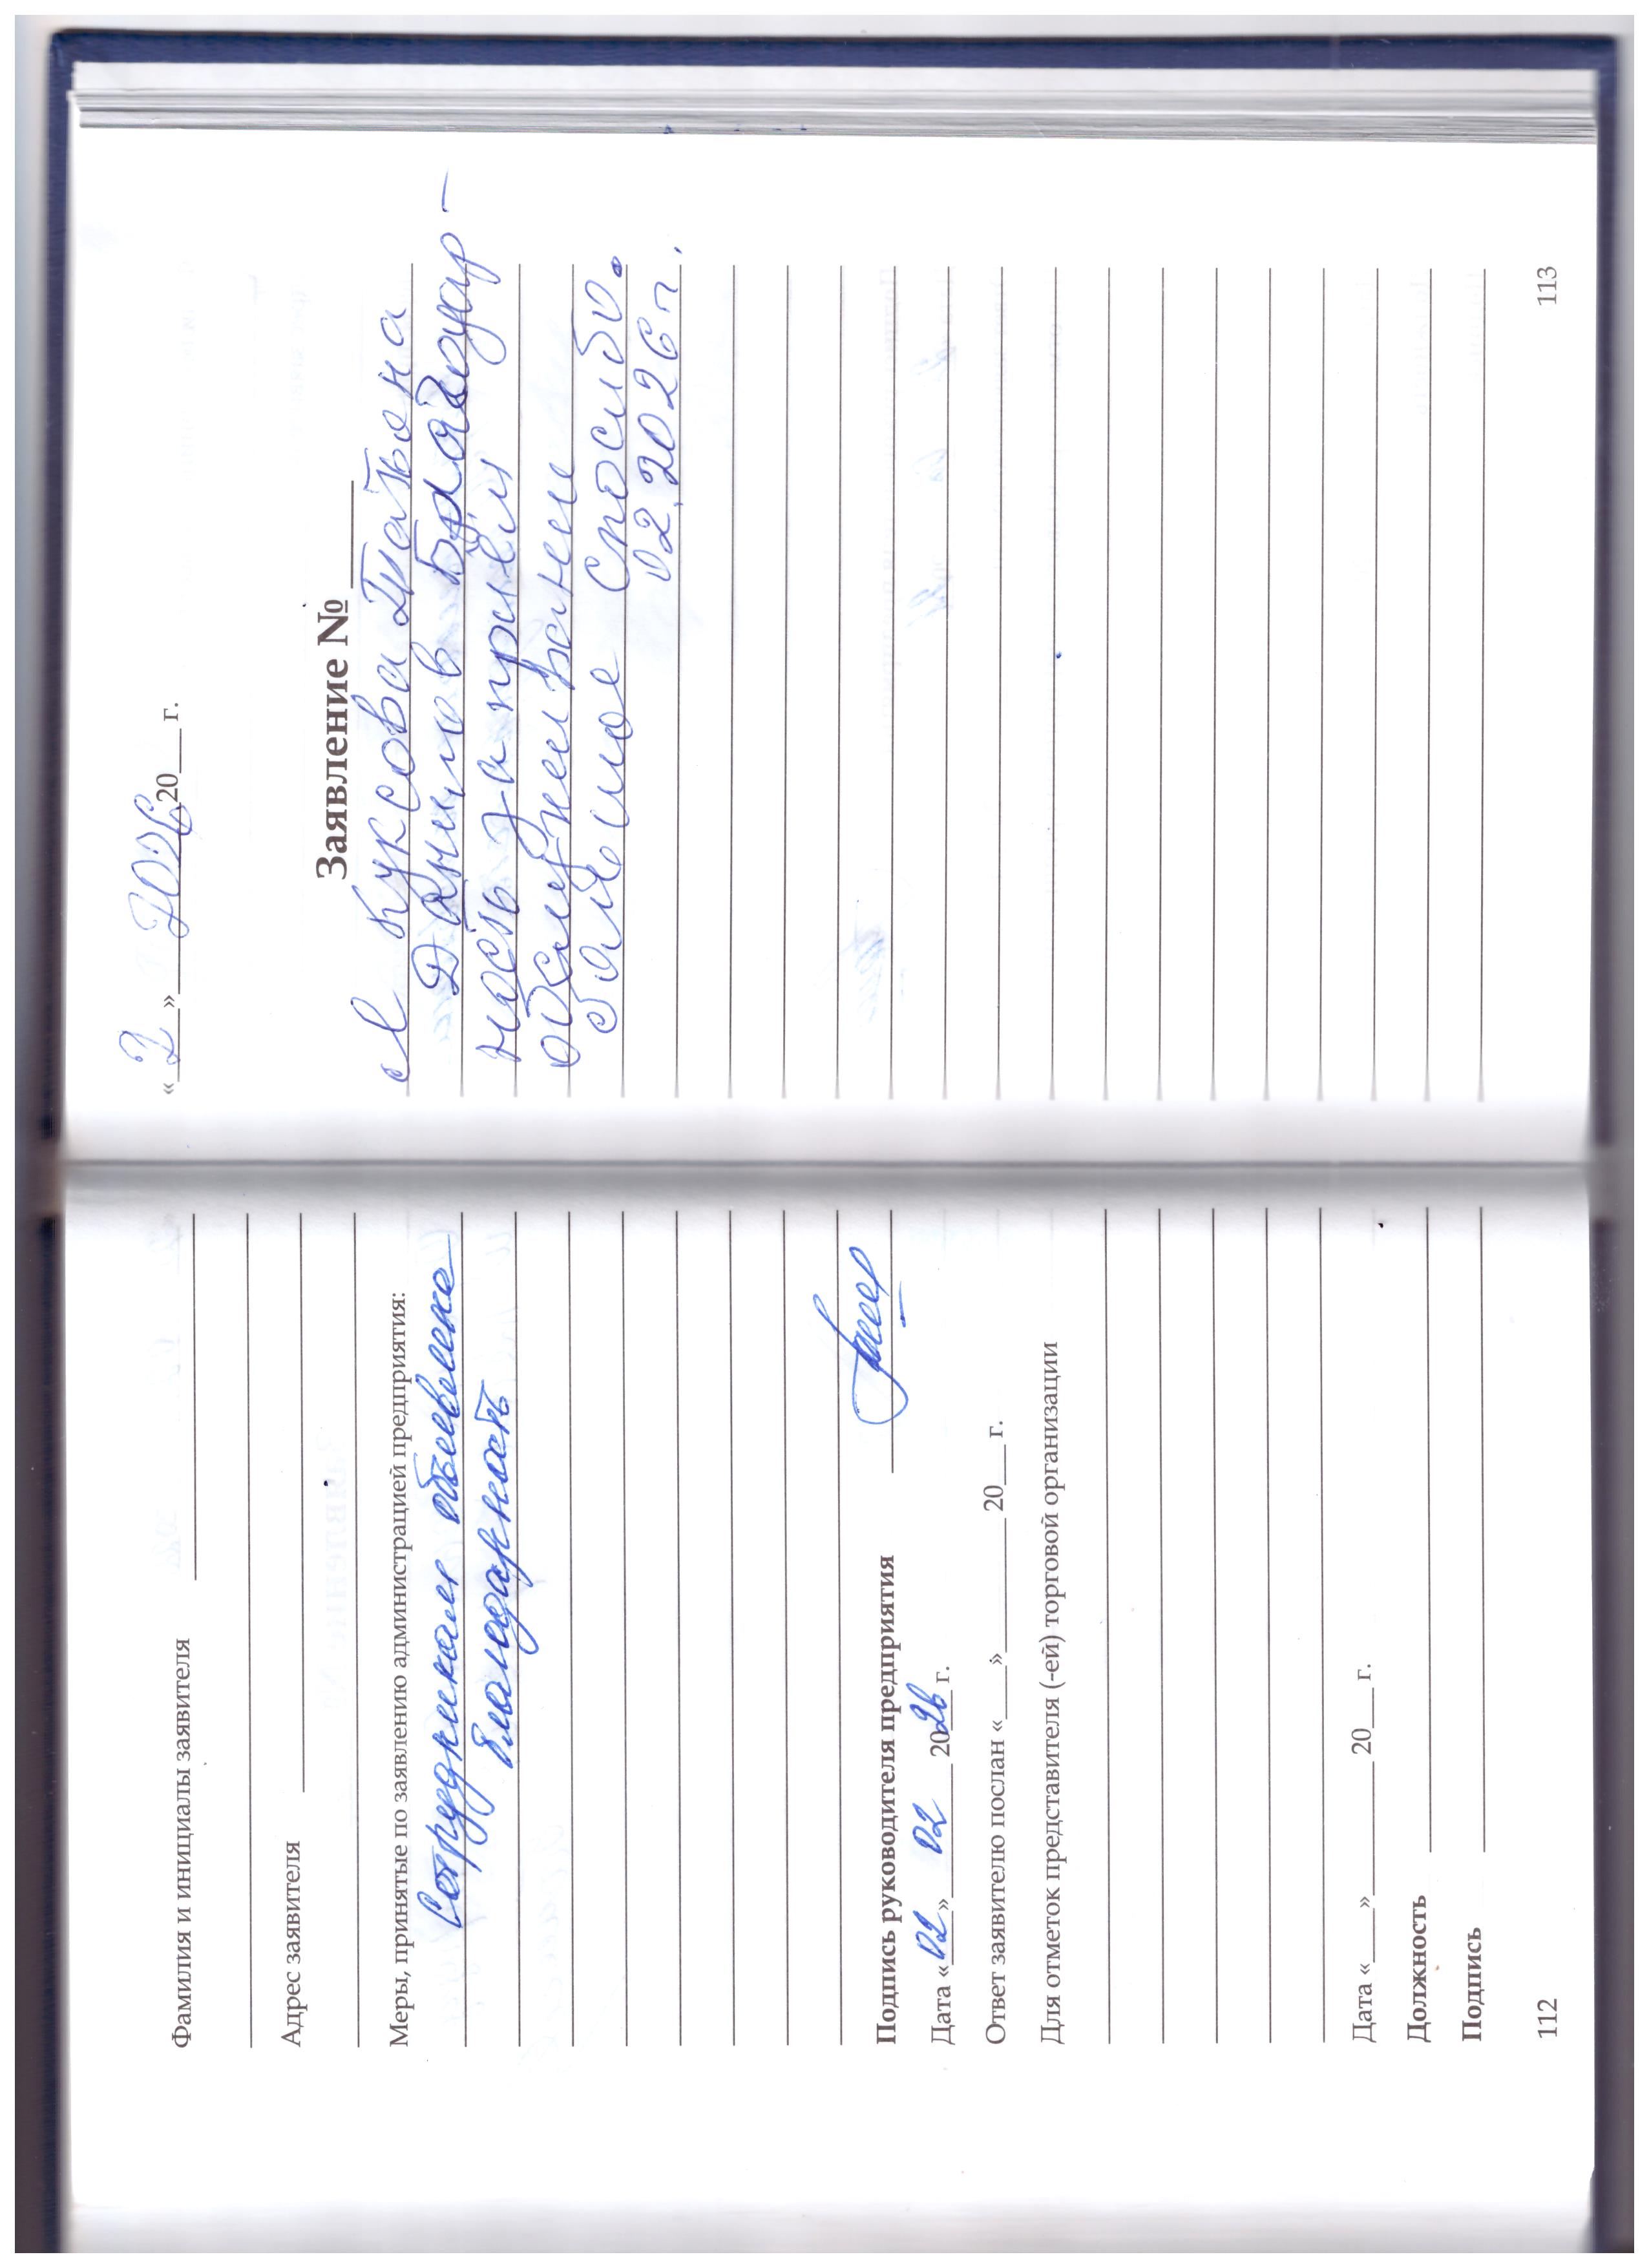 Фамилия и инициалы заявителя
Адрес заявителя
Меры, принятые по заявлению администрацией предприятия:
Сотрудникам объявлена
благодарность
Подпись руководителя предприятия
Дата «02» 02 2026 г.
Ответ заявителю послан «___»________ 20___ г.
Для отметок представителя (-ей) торговой организации
Дата «___»________ 20___ г.
Должность
Подпись
112
« 2 » 2026 20___ г.
Заявление №
Я Куксова Татьяна
Благодар-
ность за
обслуживание
большое спасибо.
02.2026 г.
113